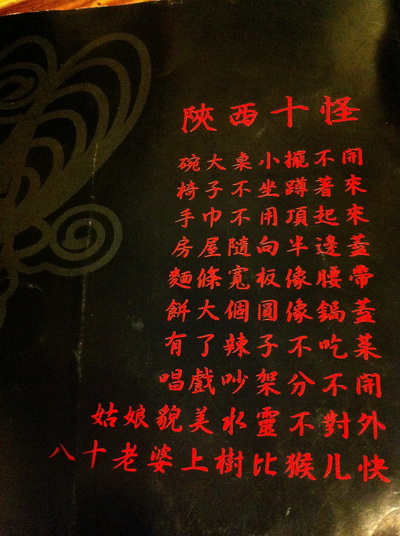 陝西十怪
碗大桌小擺不開
椅子不坐蹲著來
手巾不用頂起來
房屋隨向半邊蓋
麵條寬板像腰帶
餅大個圓像鍋蓋
有了辣子不吃菜
唱戲吵架分不開
姑娘貌美水靈不對外
八十老婆上樹比猴儿快